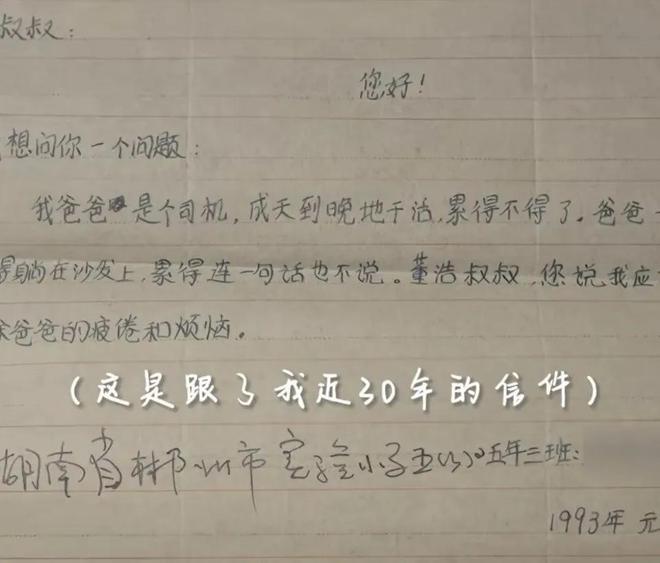 叔叔：
您好！
想问你一个问题：
我爸爸是个司机，成天到晚地干活，累得不得了。爸爸
躺在沙发上，累得连一句话也不说。董浩叔叔，您说我应
爸爸的疲倦和烦恼。
（这是跟了我近30年的信件）
湖南省郴州市实验小学五(3) 五年三班：
1993年 元